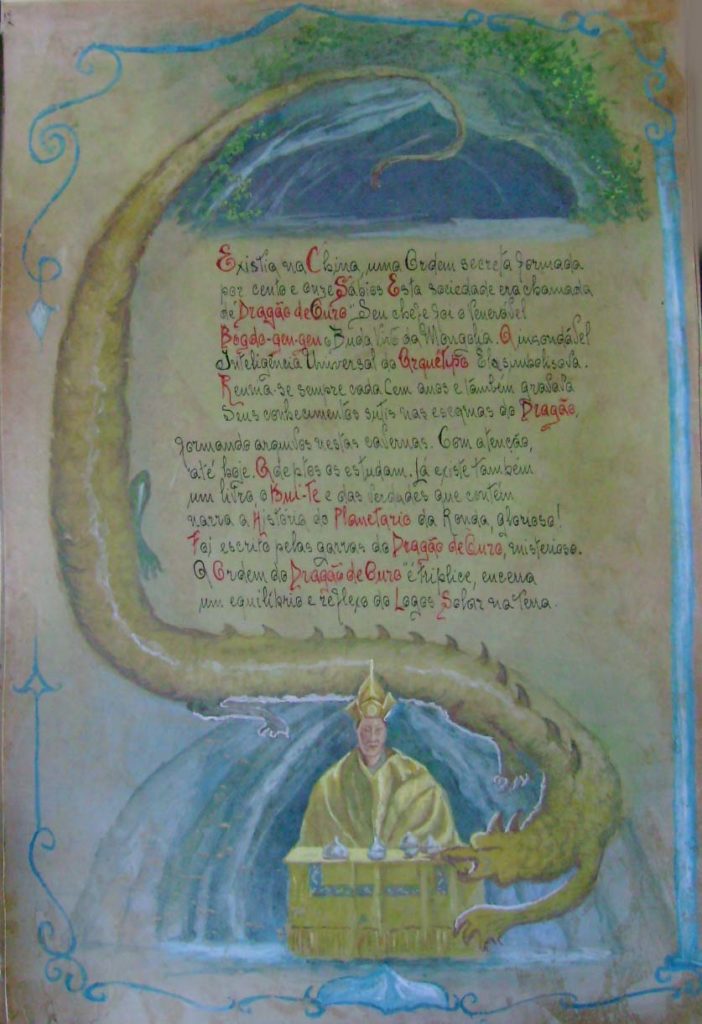 Existia na China, uma Ordem secreta formada
por cento e onze Sábios Esta sociedade era chamada
de "Dragão de Ouro" Seu chefe foi o Venerável
Bogdo-gen-gen o Buda Vivo da Mongolia. A insondável
Inteligência Universal do Arquétipo Ele simbolisava.
Reunia-se sempre cada Cem anos e também gravava
Seus conhecimentos sutis nas escamas do Dragão,
formando arquivos nestas cavernas. Com atenção,
até hoje. Adeptos os estudam. Já existe também
um livro o Kul-Te e das Verdades que contém
narra a História do Planetario da Ronda, glorioso!
Foi escrito pelas garras do Dragão de Ouro, misterioso.
A Ordem do "Dragão de Ouro" é Triplice, encerra
um equilíbrio e reflexo do Logos Solar na Terra.